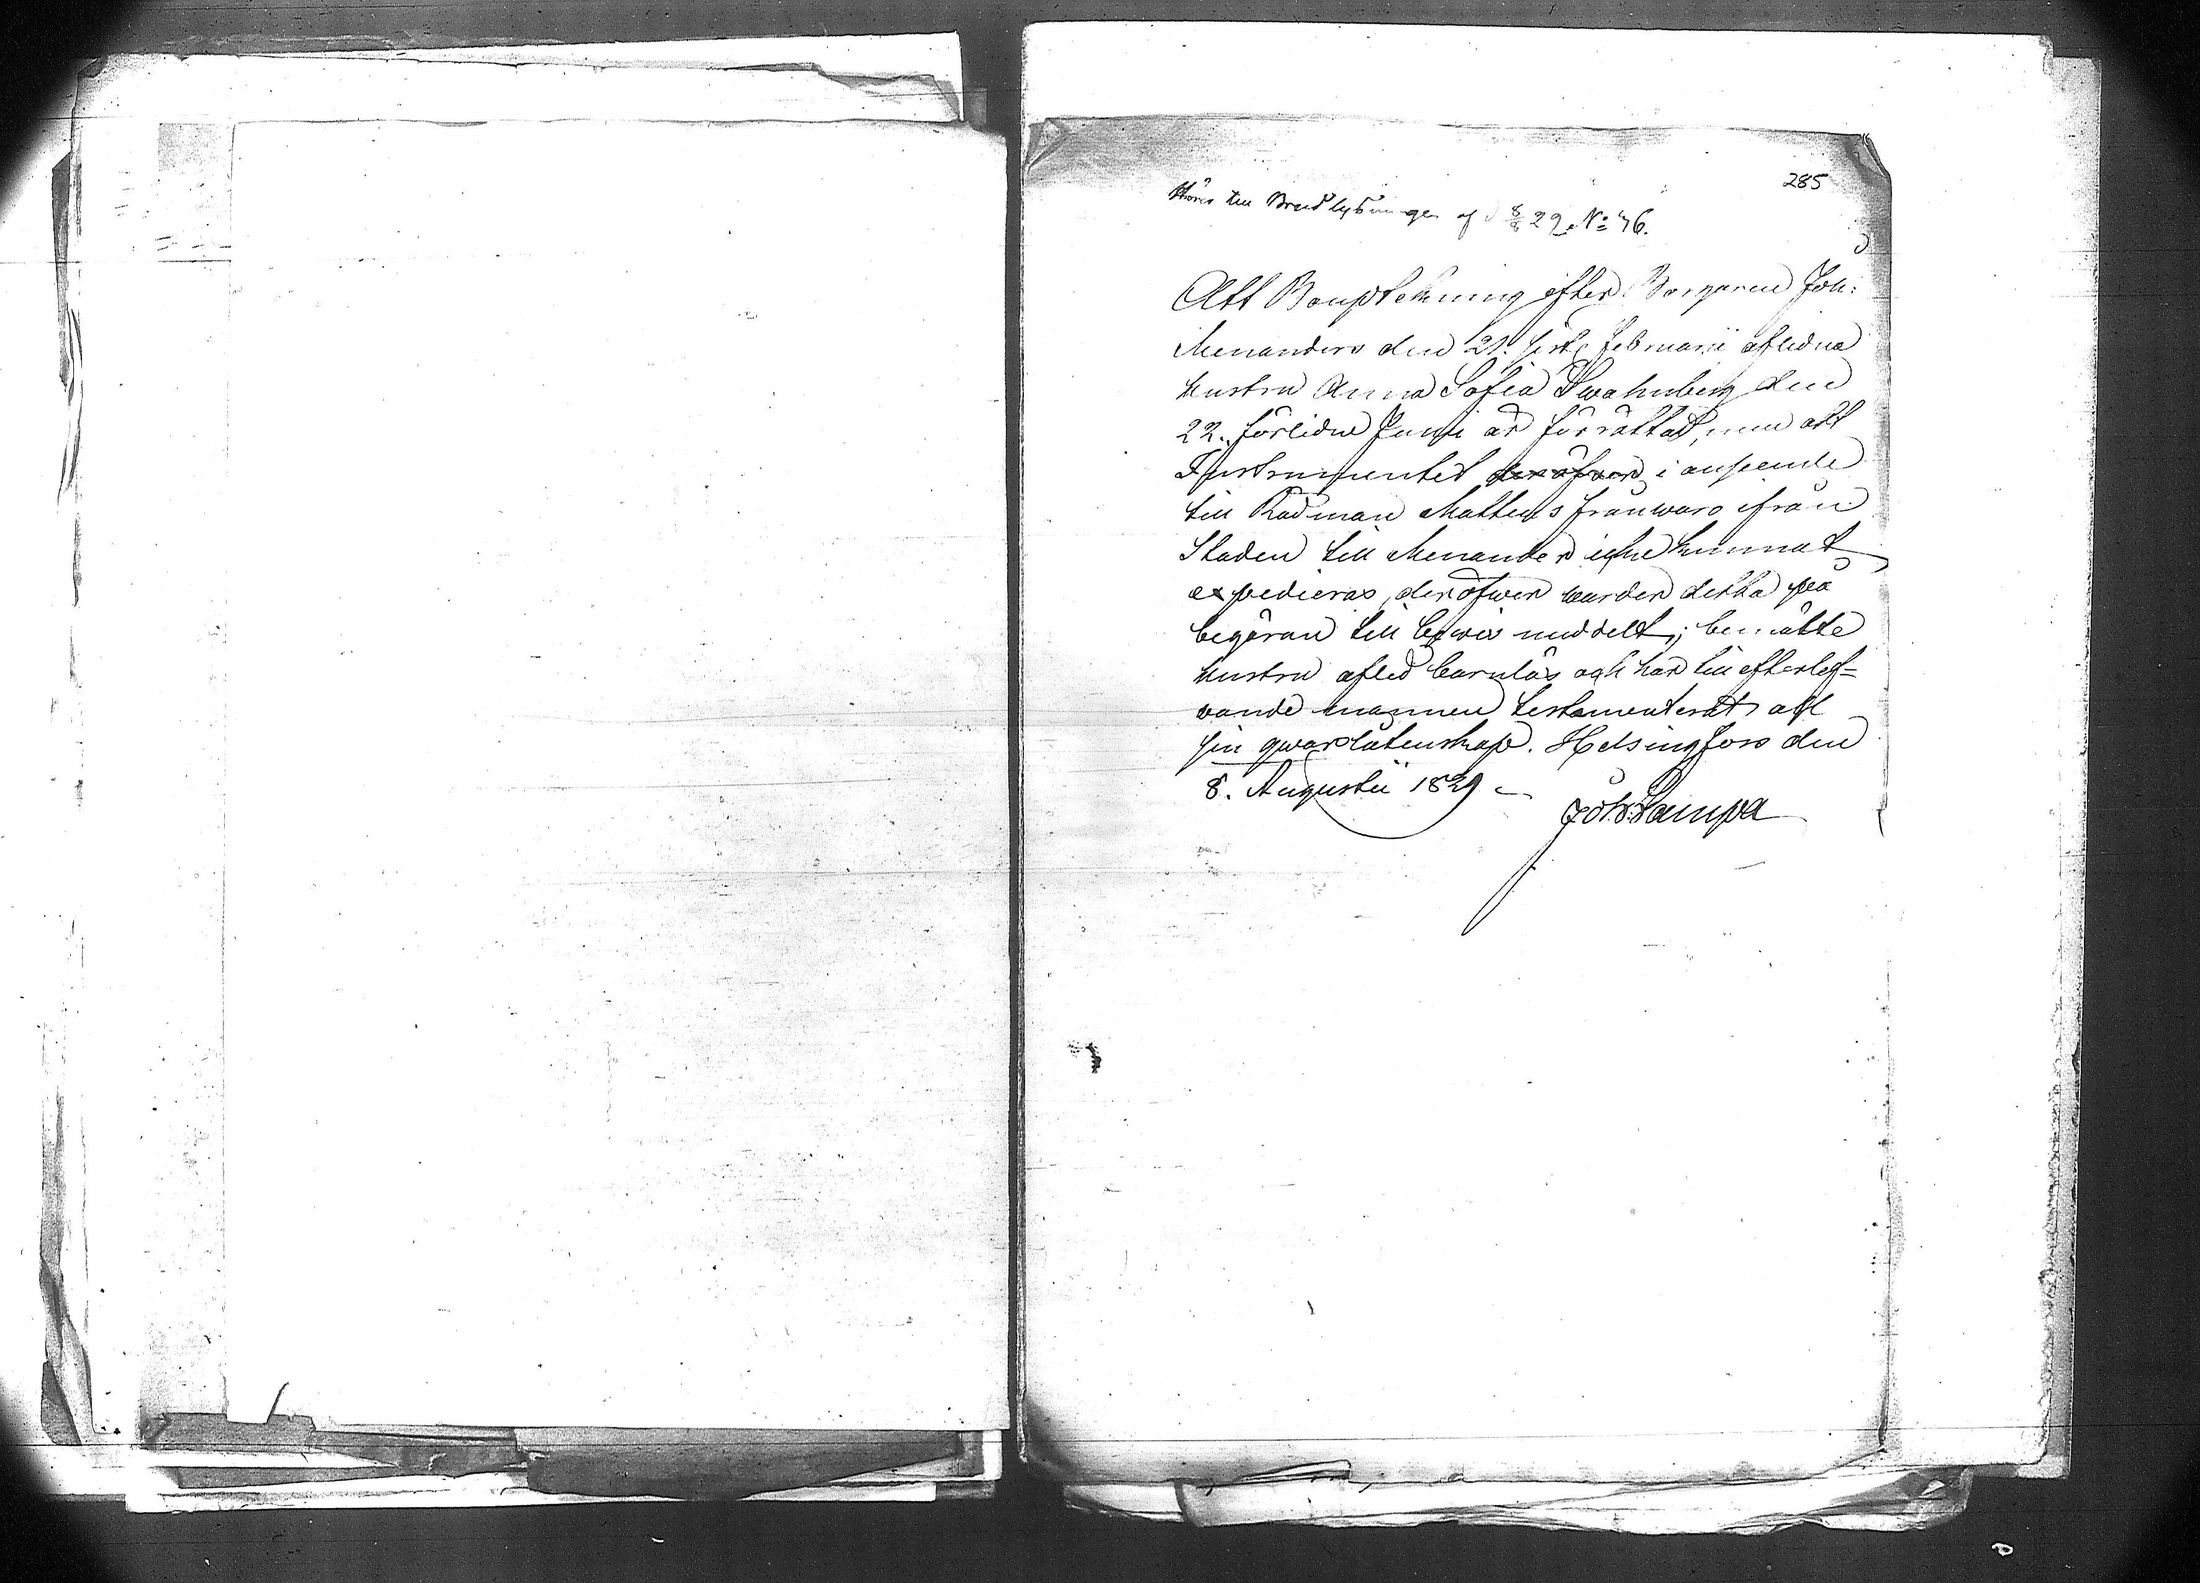 285
Hörer till Brudlysningen af d 8/8 29. No 46.
Att Bouptekning efter Borgaren Joh:
Menanders den 21. sistl. Februarii aflidna
hustru Anna Sofia Swahnberg den
22. förlidne Junii är förrättad, men att
Instrumentet deröfver i anseende
till Rådman Mattens frånwaro ifrån
Staden till Menander icke kunnat
expedieras, deröfwer warder detta på
begäran till bewis meddelt; bemälte
hustru afled barnlös och har till efterlef-
vande mannen testamenterat all
sin qwarlåtenskap. Helsingfors den
8. Augustii 1829
Joh: Kampa